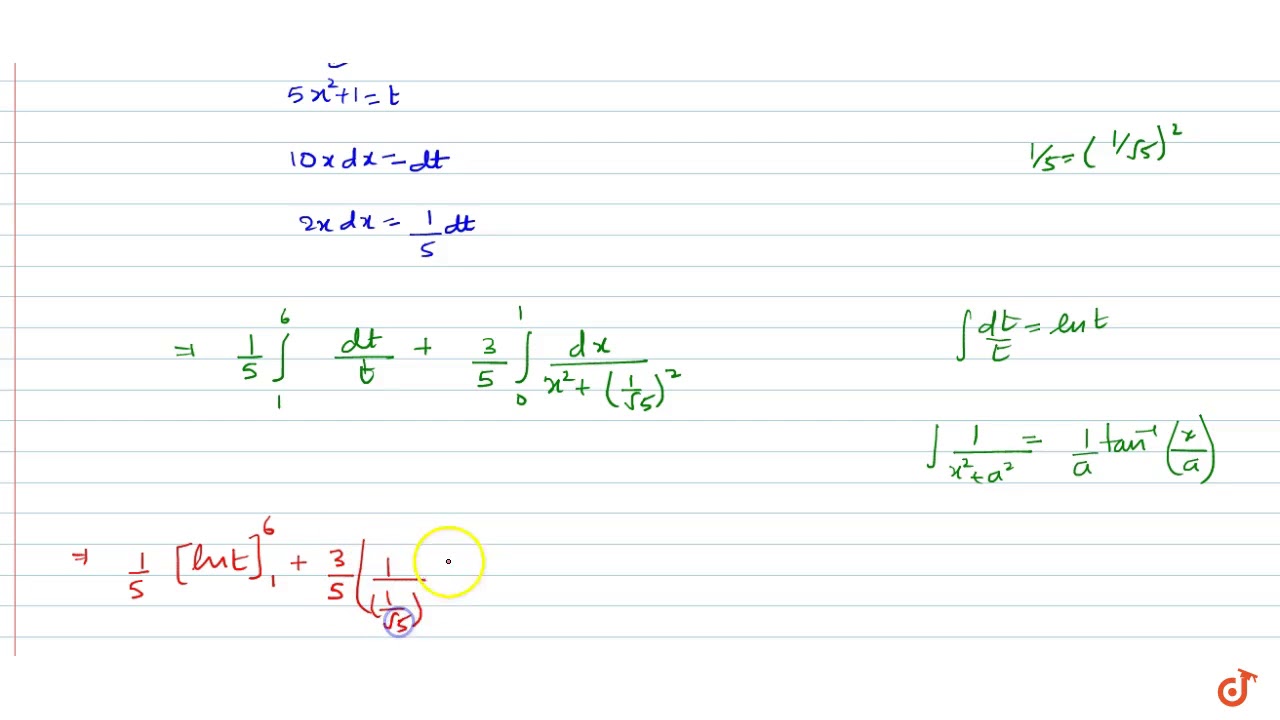 5x²+1=t
1/5=(1/√5)²
10x dx=dt
2x dx = 1/5 dt
⇒ 1/5 ∫₁⁶ dt/t + 3/5 ∫₀¹ dx/(x²+(1/√5)²)
∫dt/t = ln t
∫ 1/(x²+a²) = 1/a tan⁻¹(x/a)
⇒ 1/5 [ln t]₁⁶ + 3/5 ( 1/(1/√5)